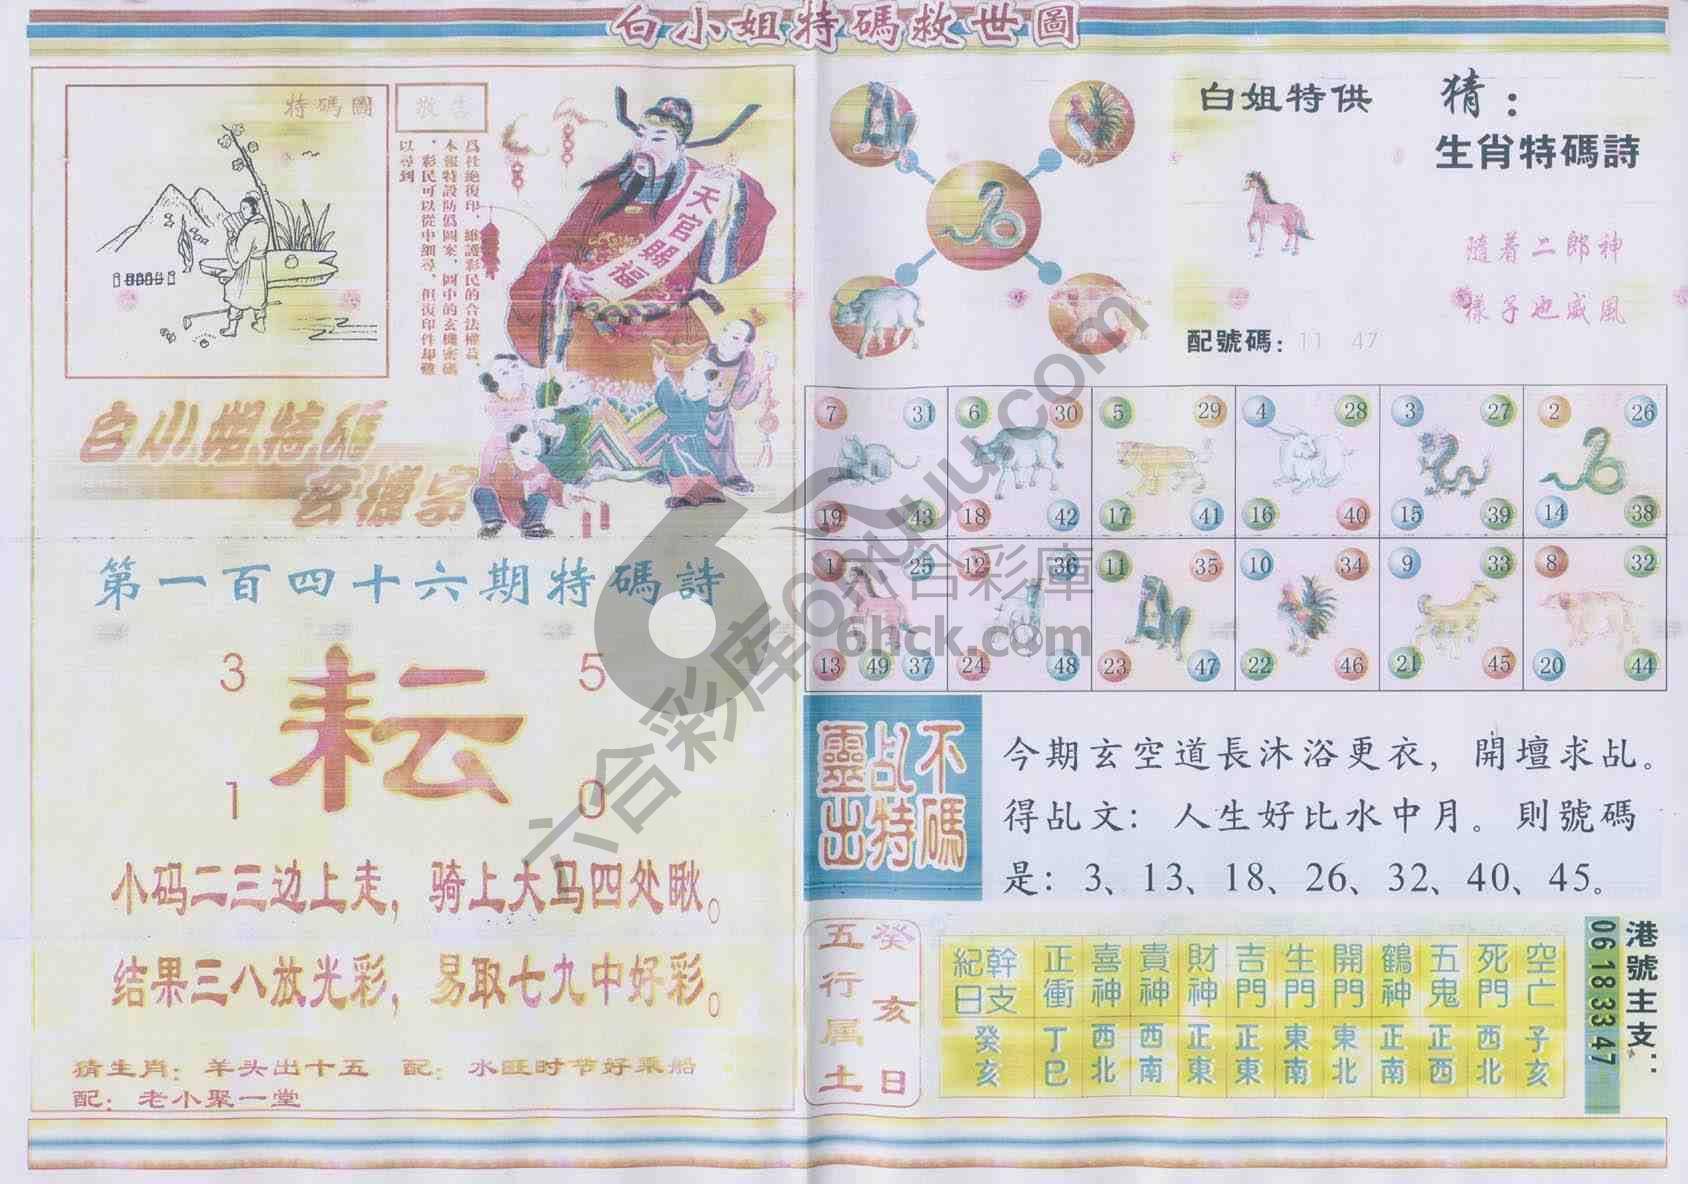 白小姐特碼救世圖
特碼圖
敬告
爲杜絶復印，維護彩民的合法權益，
本報特設防僞圖案，圖中的玄機密碼
，彩民可以從中細尋，但復印件却難
以尋到
天官賜福
白小姐特码
玄機字
第一百四十六期特碼詩
3 5
耘
1 0
小码二三边上走，骑上大马四处瞅。
结果三八放光彩，易取七九中好彩。
猜生肖：羊头出十五 配：水旺时节好乘船
配：老小聚一堂
白姐特供
猜：
生肖特碼詩
隨着二郎神
樣子也威風
配號碼：11 47
7 31 6 30 5 29 4 28 3 27 2 26
19 43 18 42 17 41 16 40 15 39 14 38
1 25 12 36 11 35 10 34 9 33 8 32
13 49 37 24 48 23 47 22 46 21 45 20 44
不碼
乩特
靈出
今期玄空道長沐浴更衣，開壇求乩。
得乩文：人生好比水中月。則號碼
是：3、13、18、26、32、40、45。
癸亥日
五行屬土
紀日幹支 正衝 喜神 貴神 財神 吉門 生門 開門 鶴神 五鬼 死門 空亡
癸亥 丁巳 西北 西南 正東 正東 東南 東北 正南 正西 西北 子亥
港號主支：
06 18 33 47
六合彩库 6huuu.com
六合彩庫
6hck.com